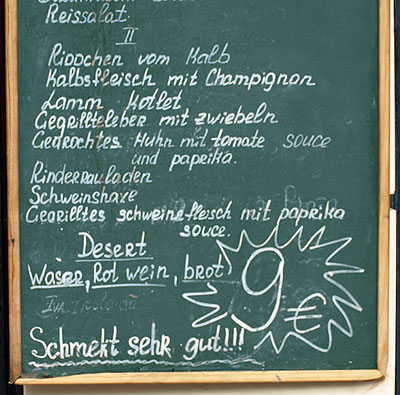 Reissalat.
II
Rippchen vom Kalb
Kalbsfleisch mit Champignon
Lamm Kotlet
Gegrillteleber mit zwiebeln
Gedrochtes Huhn mit tomate souce
und paprika.
Rinderrauladen
Schweinshaxe
Gegrilltes schweinefleisch mit paprika
souce.
Desert
Waser, Rot wein, brot
9 €
Schmekt sehr gut!!!